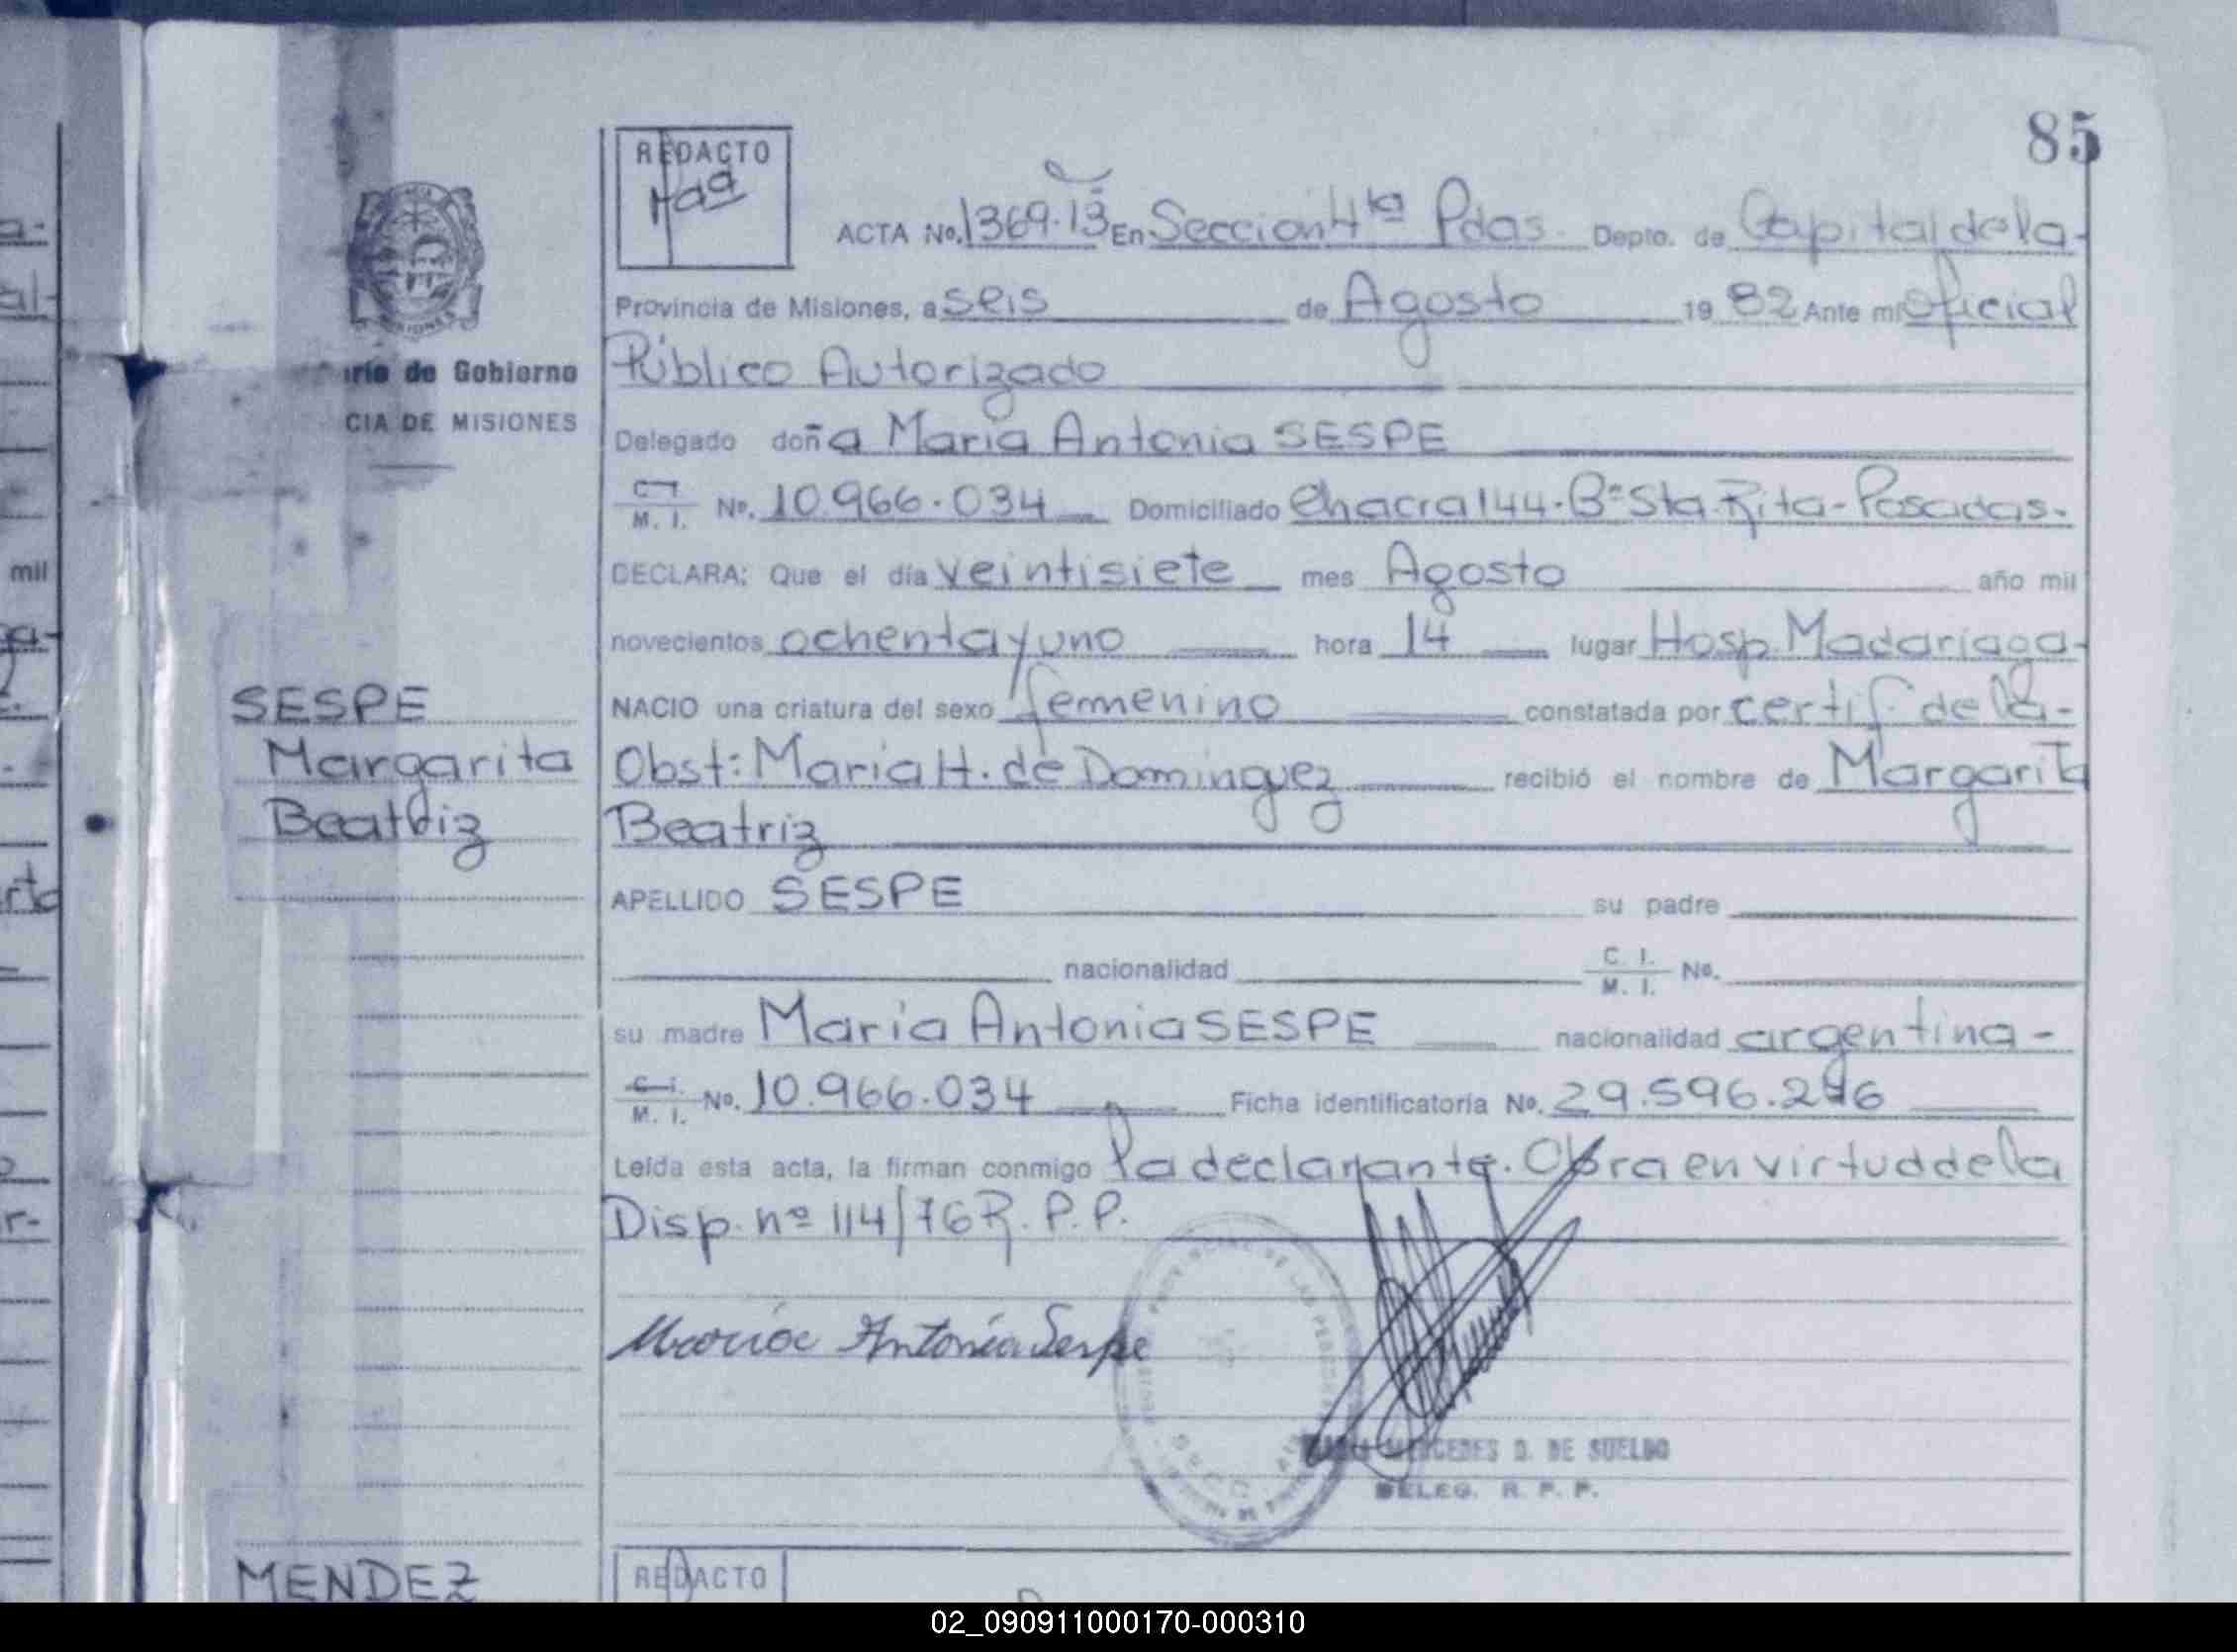 85
REDACTO
ACTA No. 1369-13 En Seccion 4ta Pdas. Depto. de Capital de la-
Provincia de Misiones, a seis de Agosto 1982 Ante mi Oficial
Público Autorizado
rio de Gobierno
CIA DE MISIONES
Delegado doña Maria Antonia SESPE
C. I. M. I. No. 10.966.034 Domiciliado Chacra 144-Bº Sta. Rita-Posadas-
DECLARA: Que el día veintisiete mes Agosto año mil
novecientos ochenta y uno hora 14 lugar Hosp. Madariaga-
NACIO una criatura del sexo femenino constatada por certif. de la-
SESPE
Margarita
Beatriz
Obst: Maria H. de Dominguez recibió el nombre de Margarita
Beatriz
APELLIDO SESPE su padre
nacionalidad C. I. M. I. No.
su madre Maria Antonia SESPE nacionalidad argentina-
C. I. M. I. No. 10.966.034 Ficha identificatoria No. 29.596.
Leída esta acta, la firman conmigo la declarante. Obra en virtud de la
Disp. nº 114/76 R.P.P.
Maria Antonia Sespe
MERCEDES D. DE SUELDO
DELEG. R. P. P.
MENDEZ
REDACTO
mil
02_090911000170-000310